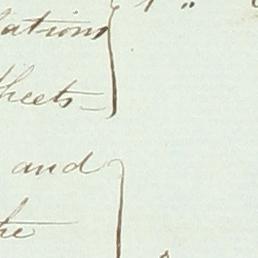 lations
sheets
and
the